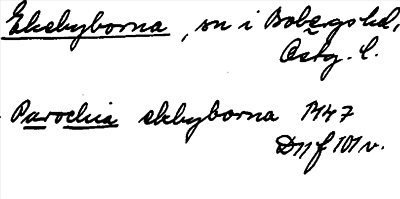 Ekebyborna, sn i Bobergs hd,
Östg. l.
Parochia ekbyborna 1447
D11 f 101 v.